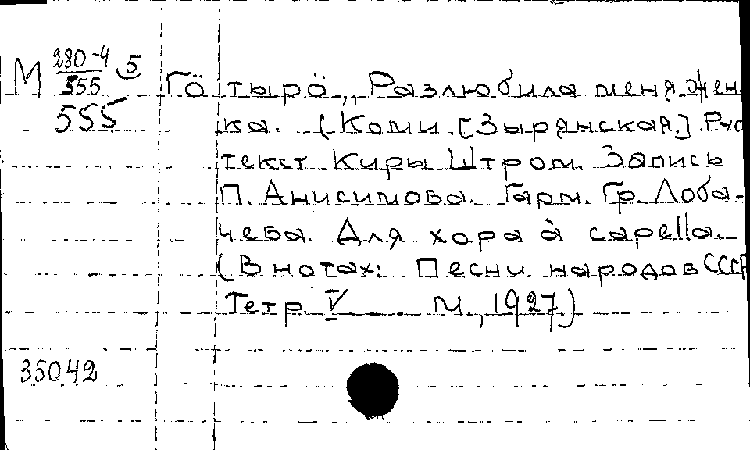 М 280-4 5
555
555
Гӧ тырӧ, „Разлюбила меня жен
ка. (Коми [Зырянская.] Рус
текст Киры Штром. Запись
П. Анисимова. Гарм. Гр. Лоба-
чева. Для хора à capella.
(В нотах: Песни народов СССР
Тетр V М., 1927.)
35042